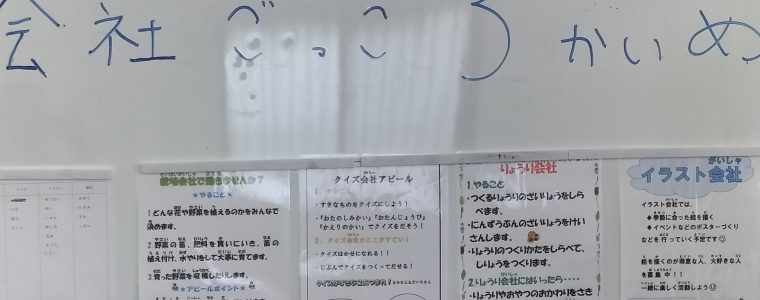 会社ごっこ
かいめ
会社で働きませんか？
★やること★
1.どんな花や野菜を植えるのかをみんなで
決めます。
2.野菜の苗、肥料を買いにいき、苗の
植え付け、水やりをして大事に育てます。
3.育った野菜を収穫したいします。
★アピールポイント★
クイズ会社アピール
・すきなものをクイズにしよう！
・「おたのしみかい」「おたんじょうび」
「かえりのかい」でクイズをだそう！
2. クイズ会社のここがすごい！
・クイズはかせになれる！！
・じぶんでクイズをつくってだせる！
りょうり会社
1.やること
・つくるりょうりのざいりょうをしら
べます。
・にんずうぶんのざいりょうをけい
さんします。
・りょうりのつくりかたをしらべて、
しりょうをつくります。
2.りょうり会社にはいったら・・・・
・りょうりやおやつのおかわりをさき
イラスト会社
イラスト会社では、
◆季節に合った絵を描く
◆イベントなどのポスターづくり
などを 行っていく予定です☺
絵を描くのが得意な人、大好きな人
を募集 中！！
一緒に楽しく活動しよう！